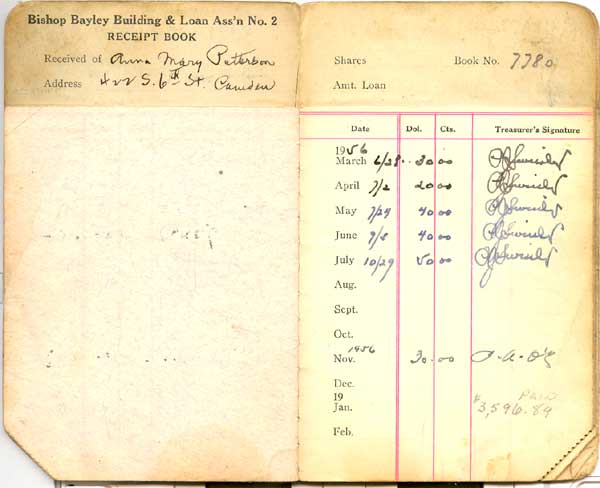 Bishop Bayley Building & Loan Ass'n No. 2
RECEIPT BOOK
Received of Anna Mary Peterson
Address 422 S. 6th St. Camden
Shares Book No. 7780
Amt. Loan
Date Dol. Cts. Treasurer's Signature
1956
March 6/28 30 00
April 7/2 20 00
May 7/24 40 00
June 9/5 40 00
July 10/29 50 00
Aug.
Sept.
Oct.
1956
Nov. 30.00
Dec.
19
Jan. PAID
$3,596.89
Feb.